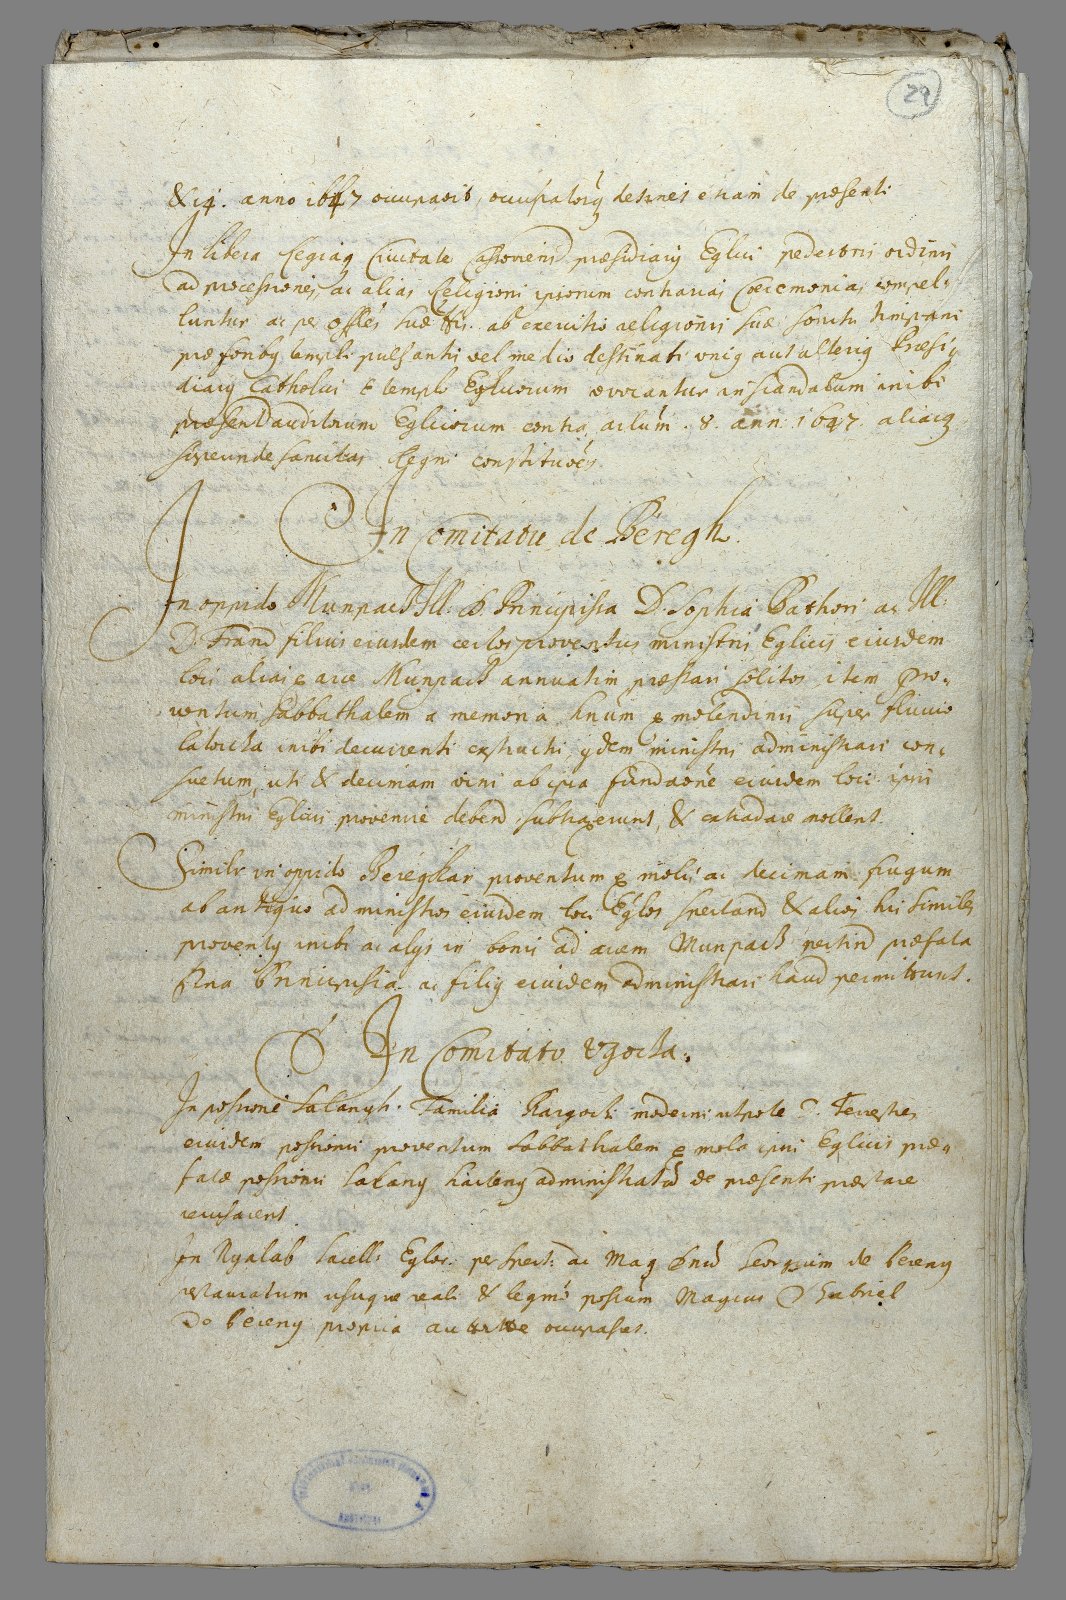 29
& 14. anno 1647 occupavit, occupatosq detinet etiam de præsenti
In libera Regiaq Civitate Cassoviensi præsidiarij Eglici pedestris ordinis
ad processiones, ac alias Religioni ipsorum contrarias Cœremonias compel=
luntur ac per offles suæ ab exercitio religionis suæ sonitu timpani
præ foribq templi pulsanti vel medio destinati uniq aut alteriq Præsi=
diarij Catholici e templo Eglicorum evocantur in scandalum inibi
præsent auditorum Eglicorum contra artlum. 8. ann: 1647. aliasq
superinde sancitas Regni constitutões.
In Comitatu de Beregh.
In oppido Munpach Ill: D Principissa D. Sophia Bathori ac Ill:
D. Franc filius eiusdem certos proventus ministri Eglicis eiusdem
loci alias e arce Munpach annuatim præstari solitos, item pro=
ventum sabbathalem a memoria hnum e molendinis super fluvio
latorcza inibi decurrenti extructi ijdem ministri administrari con=
suetum, uti & decimam vini ab ipsa fundaõne eiusdem loci ipsi
ministri Eglicis provenire debend subtraxerunt, & extradare nollent.
Similr in oppido Beregszaz proventum e molis ac decimam frugum
ab antiquo ad ministros eiusdem loci Eglos spectand & alios his similes
proventq inibi ac alijs in bonis ad arcem Munpach pertind præfata
Dna Principissa ac filiq eiusdem administrari haud permittunt.
In Comitatu Ugocha.
In possione Sakangh. Familia moderni utpote D. Terrestres
eiusdem possionis proventum sabbathalem e mola ipsi Eglicis præ=
fatæ possionis Sakany hactenq administratũ de præsenti præstare
recusarent.
In Nyalab Sacellũ Eglos. per Spect: ac Mag Dnũ Georgium de Pereny
restauratum usuque reali & legmo possum Magcus D Gabriel
De Pereny propria autritte occupasset.